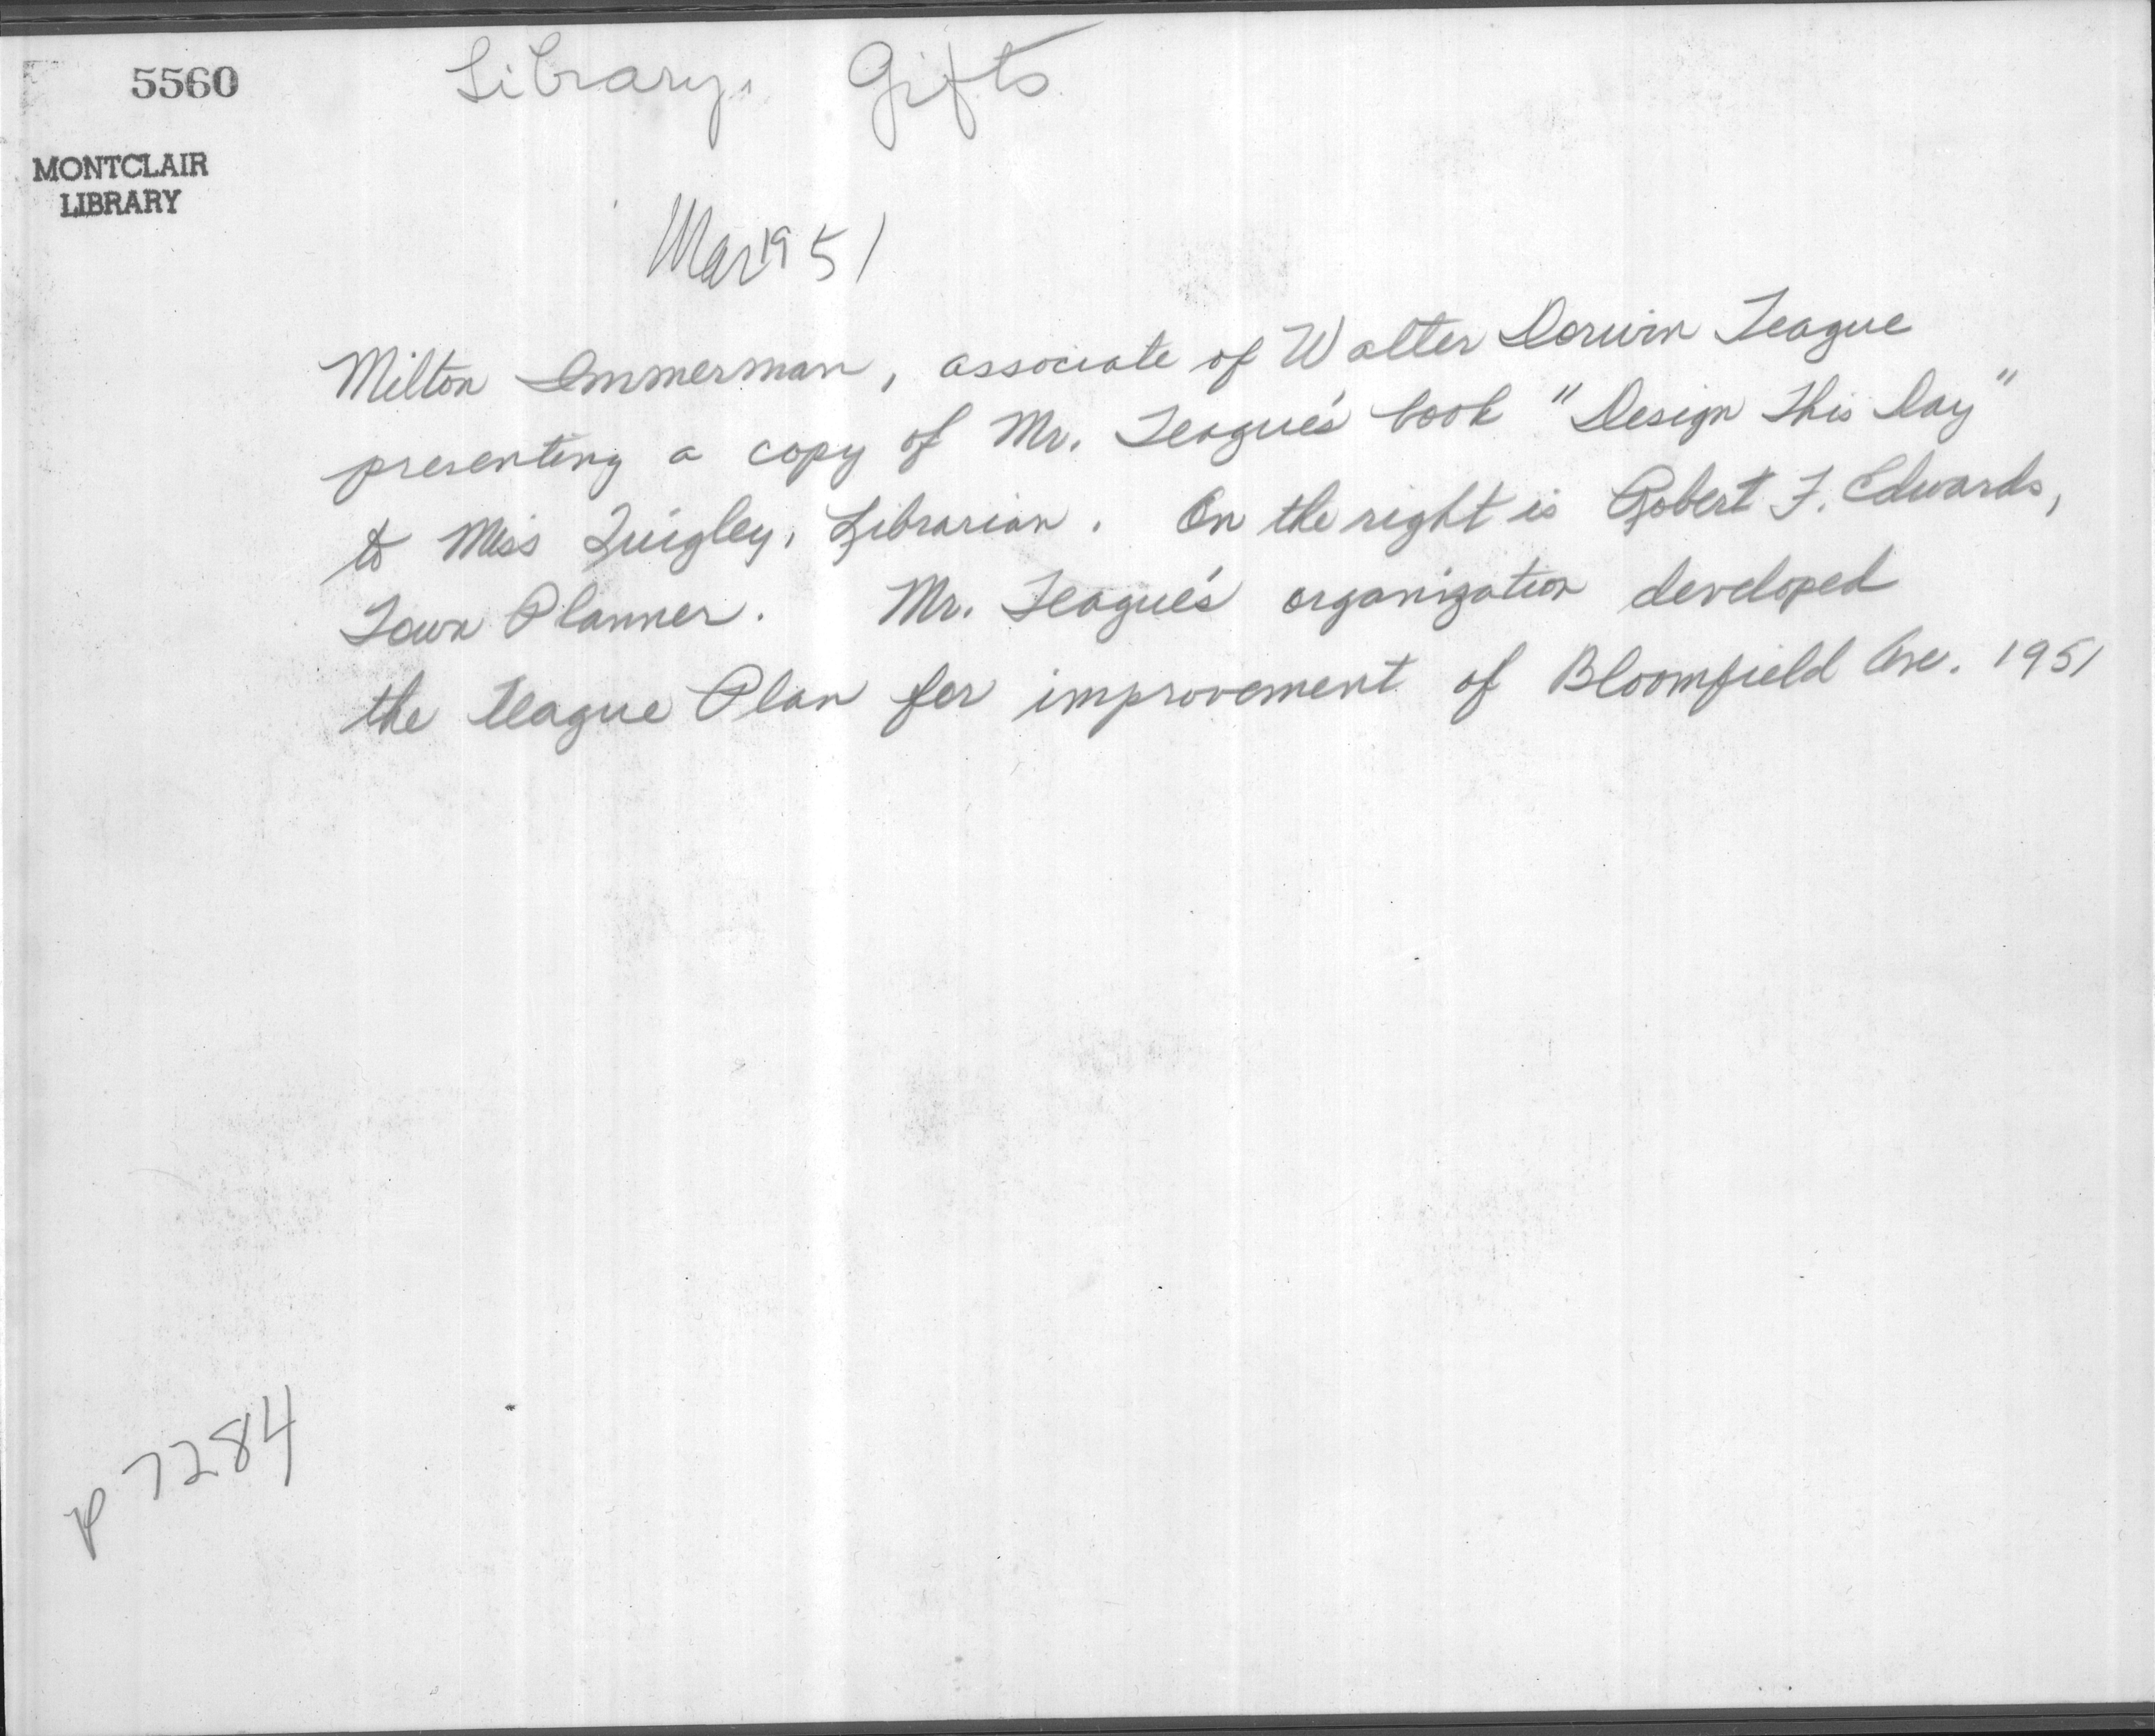 5560
Library. Gifts
MONTCLAIR
LIBRARY
Mar 1951
Milton Immerman, associate of Walter Dorwin Teague
presenting a copy of Mr. Teague's book "Design This Day"
to Miss Quigley, Librarian. On the right is Robert F. Edwards,
Town Planner. Mr. Teague's organization developed
the Teague Plan for improvement of Bloomfield Ave. 1951
p 7284